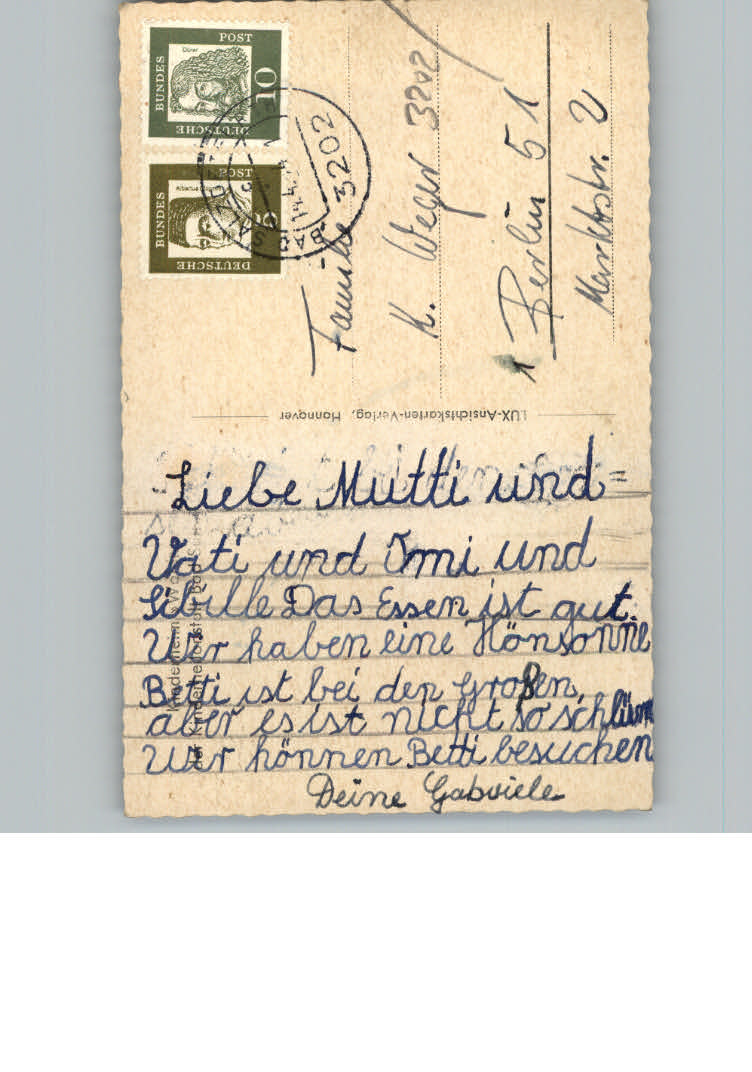 Liebe Mutti und
Vati und Omi und
Sibille Das Essen ist gut.
Wir haben eine Hönsonne
Betti ist bei den großen,
aber es ist nicht so schlimm
Wir hönnen Betti besuchen
Deine Gabriele
Familie
K. Weger 3202
Berlin 51
Marktstr. 2
LUX-Ansichtskarten-Verlag, Hannover
DEUTSCHE
BUNDES
POST
10
Dürer
DEUTSCHE
BUNDES
POST
Albertus
BAD SALZ
3202
Kinderheim